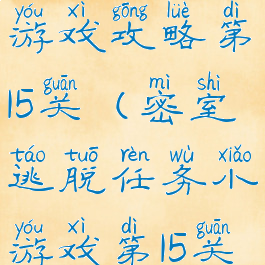 yóu xì gōng lüè dì
游戏攻略第
guān mì shì
15关(密室
táo tuō rèn wù xiǎo
逃脱任务小
yóu xì dì guān
游戏第15关